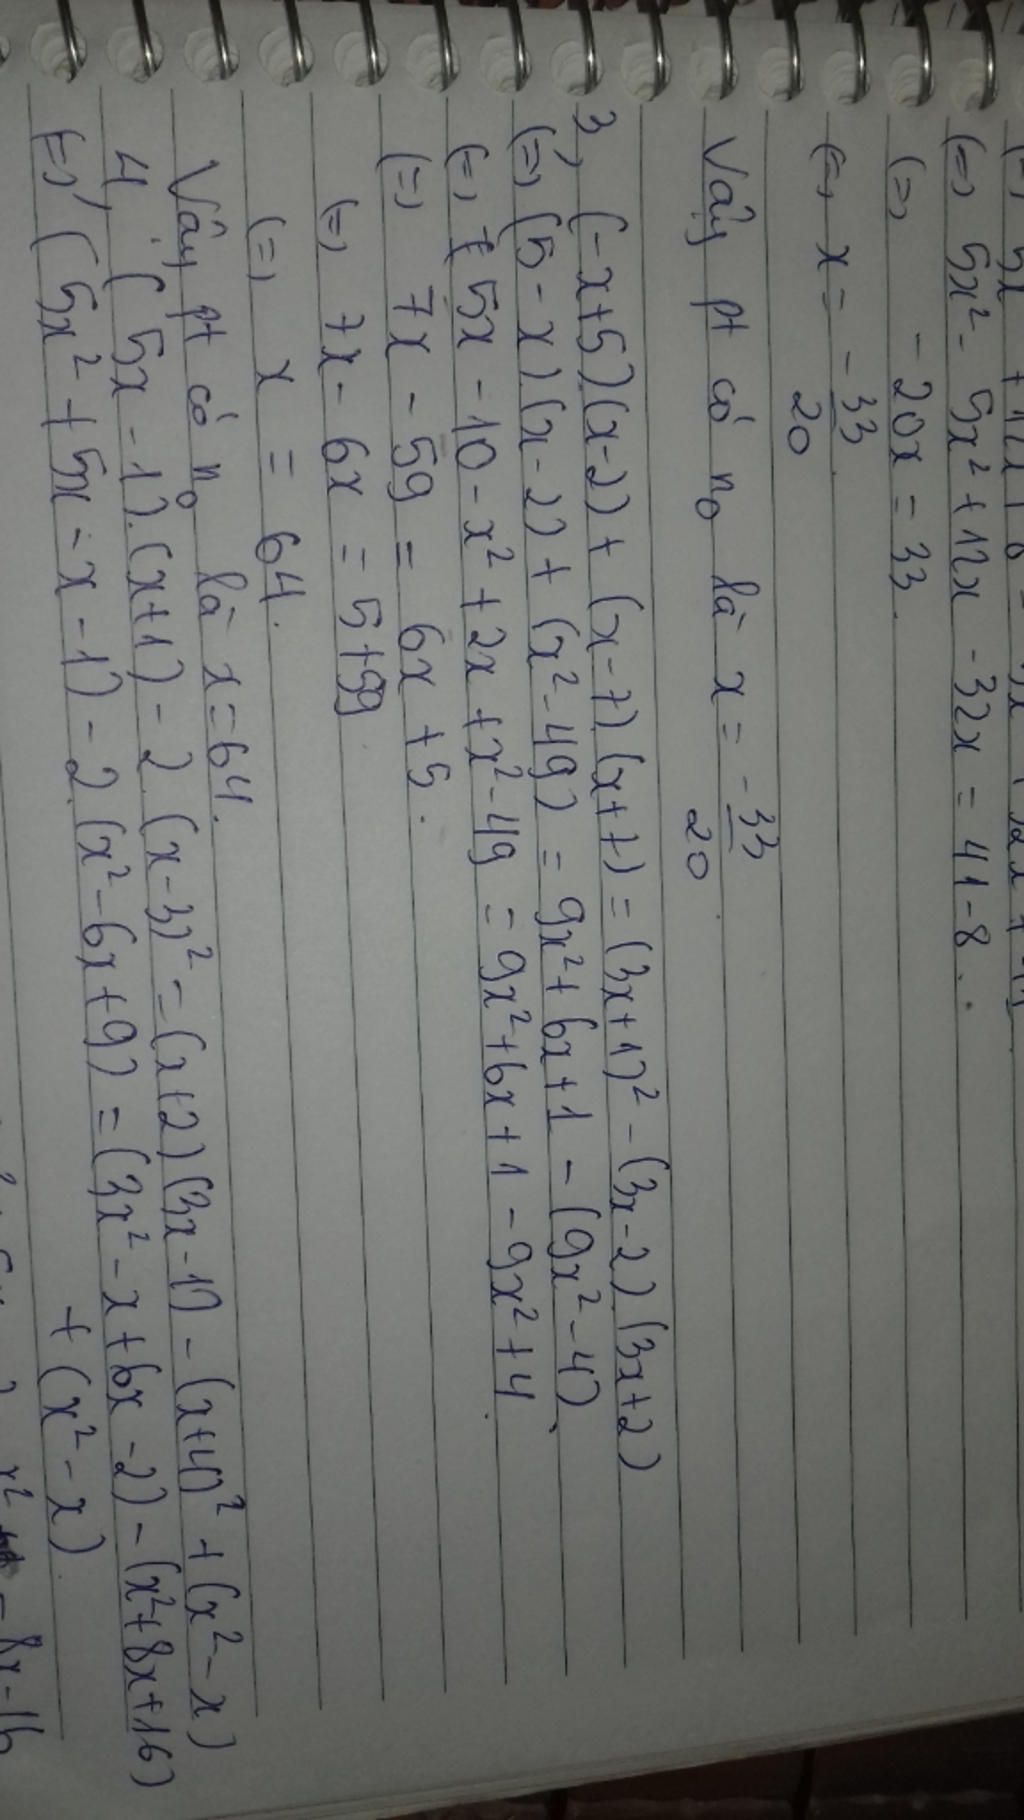 (=) 5x² - 5x² + 12x - 32x = 41 - 8.
(=) - 20x = 33.
(=) x = -33/20
Vậy pt có n₀ là x = -33/20
3, (-x+5)(x-2) + (x-7)(x+7) = (3x+1)² - (3x-2)(3x+2)
(=) (5-x)(x-2) + (x²-49) = 9x² + 6x + 1 - (9x² - 4)
(=) 5x - 10 - x² + 2x + x² - 49 = 9x² + 6x + 1 - 9x² + 4
(=) 7x - 59 = 6x + 5.
(=) 7x - 6x = 5 + 59
(=) x = 64.
Vậy pt có n₀ là x = 64.
4, (5x - 1).(x+1) - 2 (x-3)² = (x+2)(3x-1) - (x+4)² + (x² - x)
(=) (5x² + 5x - x - 1) - 2.(x² - 6x + 9) = (3x² - x + 6x - 2) - (x² + 8x + 16)
+ (x² - x)